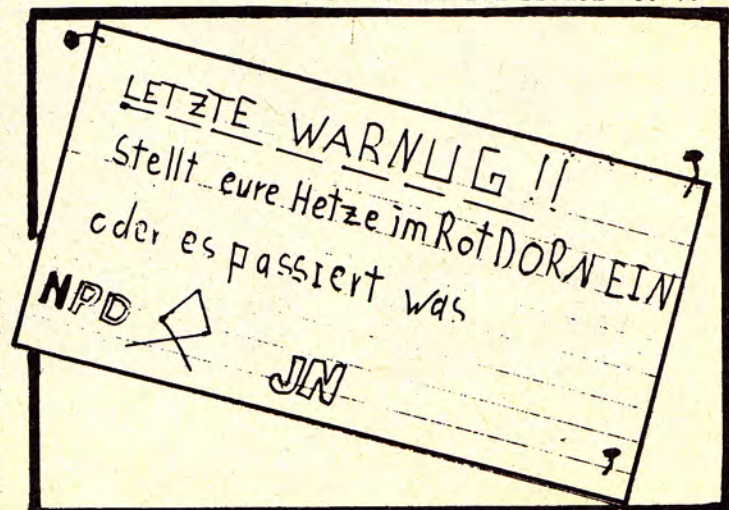 LETZTE WARNUG !!
Stellt eure Hetze im RotDORN EIN
oder es passiert was
NPD
JN